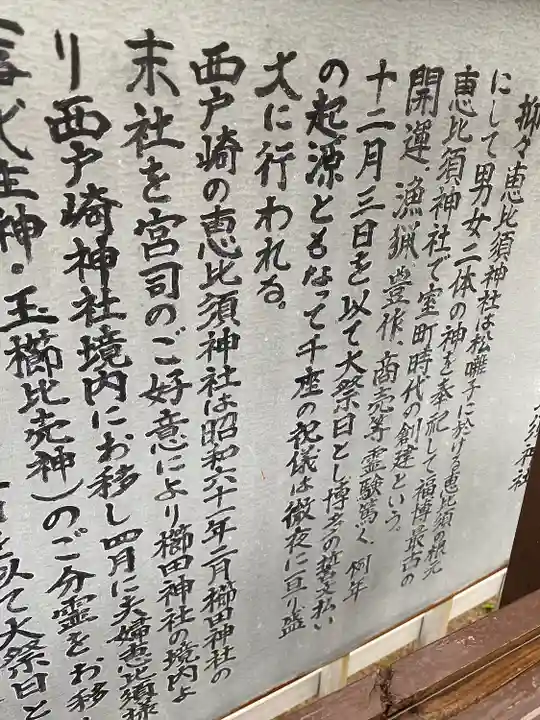 須神社
抑々恵比須神社は松囃子に於ける恵比須の根元
にして男女二体の神を奉祀して福博最古の
恵比須神社で室町時代の創建という。
開運、漁猟、豊作、商売等霊験篤く例年
十二月三日を以て大祭日とし博多の誓文払い
の起源ともなって千座の祝儀は徹夜に亘り盛
大に行われる。
西戸崎の恵比須神社は昭和六十一年二月櫛田神社の
末社を宮司のご好意により櫛田神社の境内よ
り西戸崎神社境内にお移し四月に夫婦恵比須様
代主神・玉櫛比売神)のご分霊をお移
を以て大祭日と